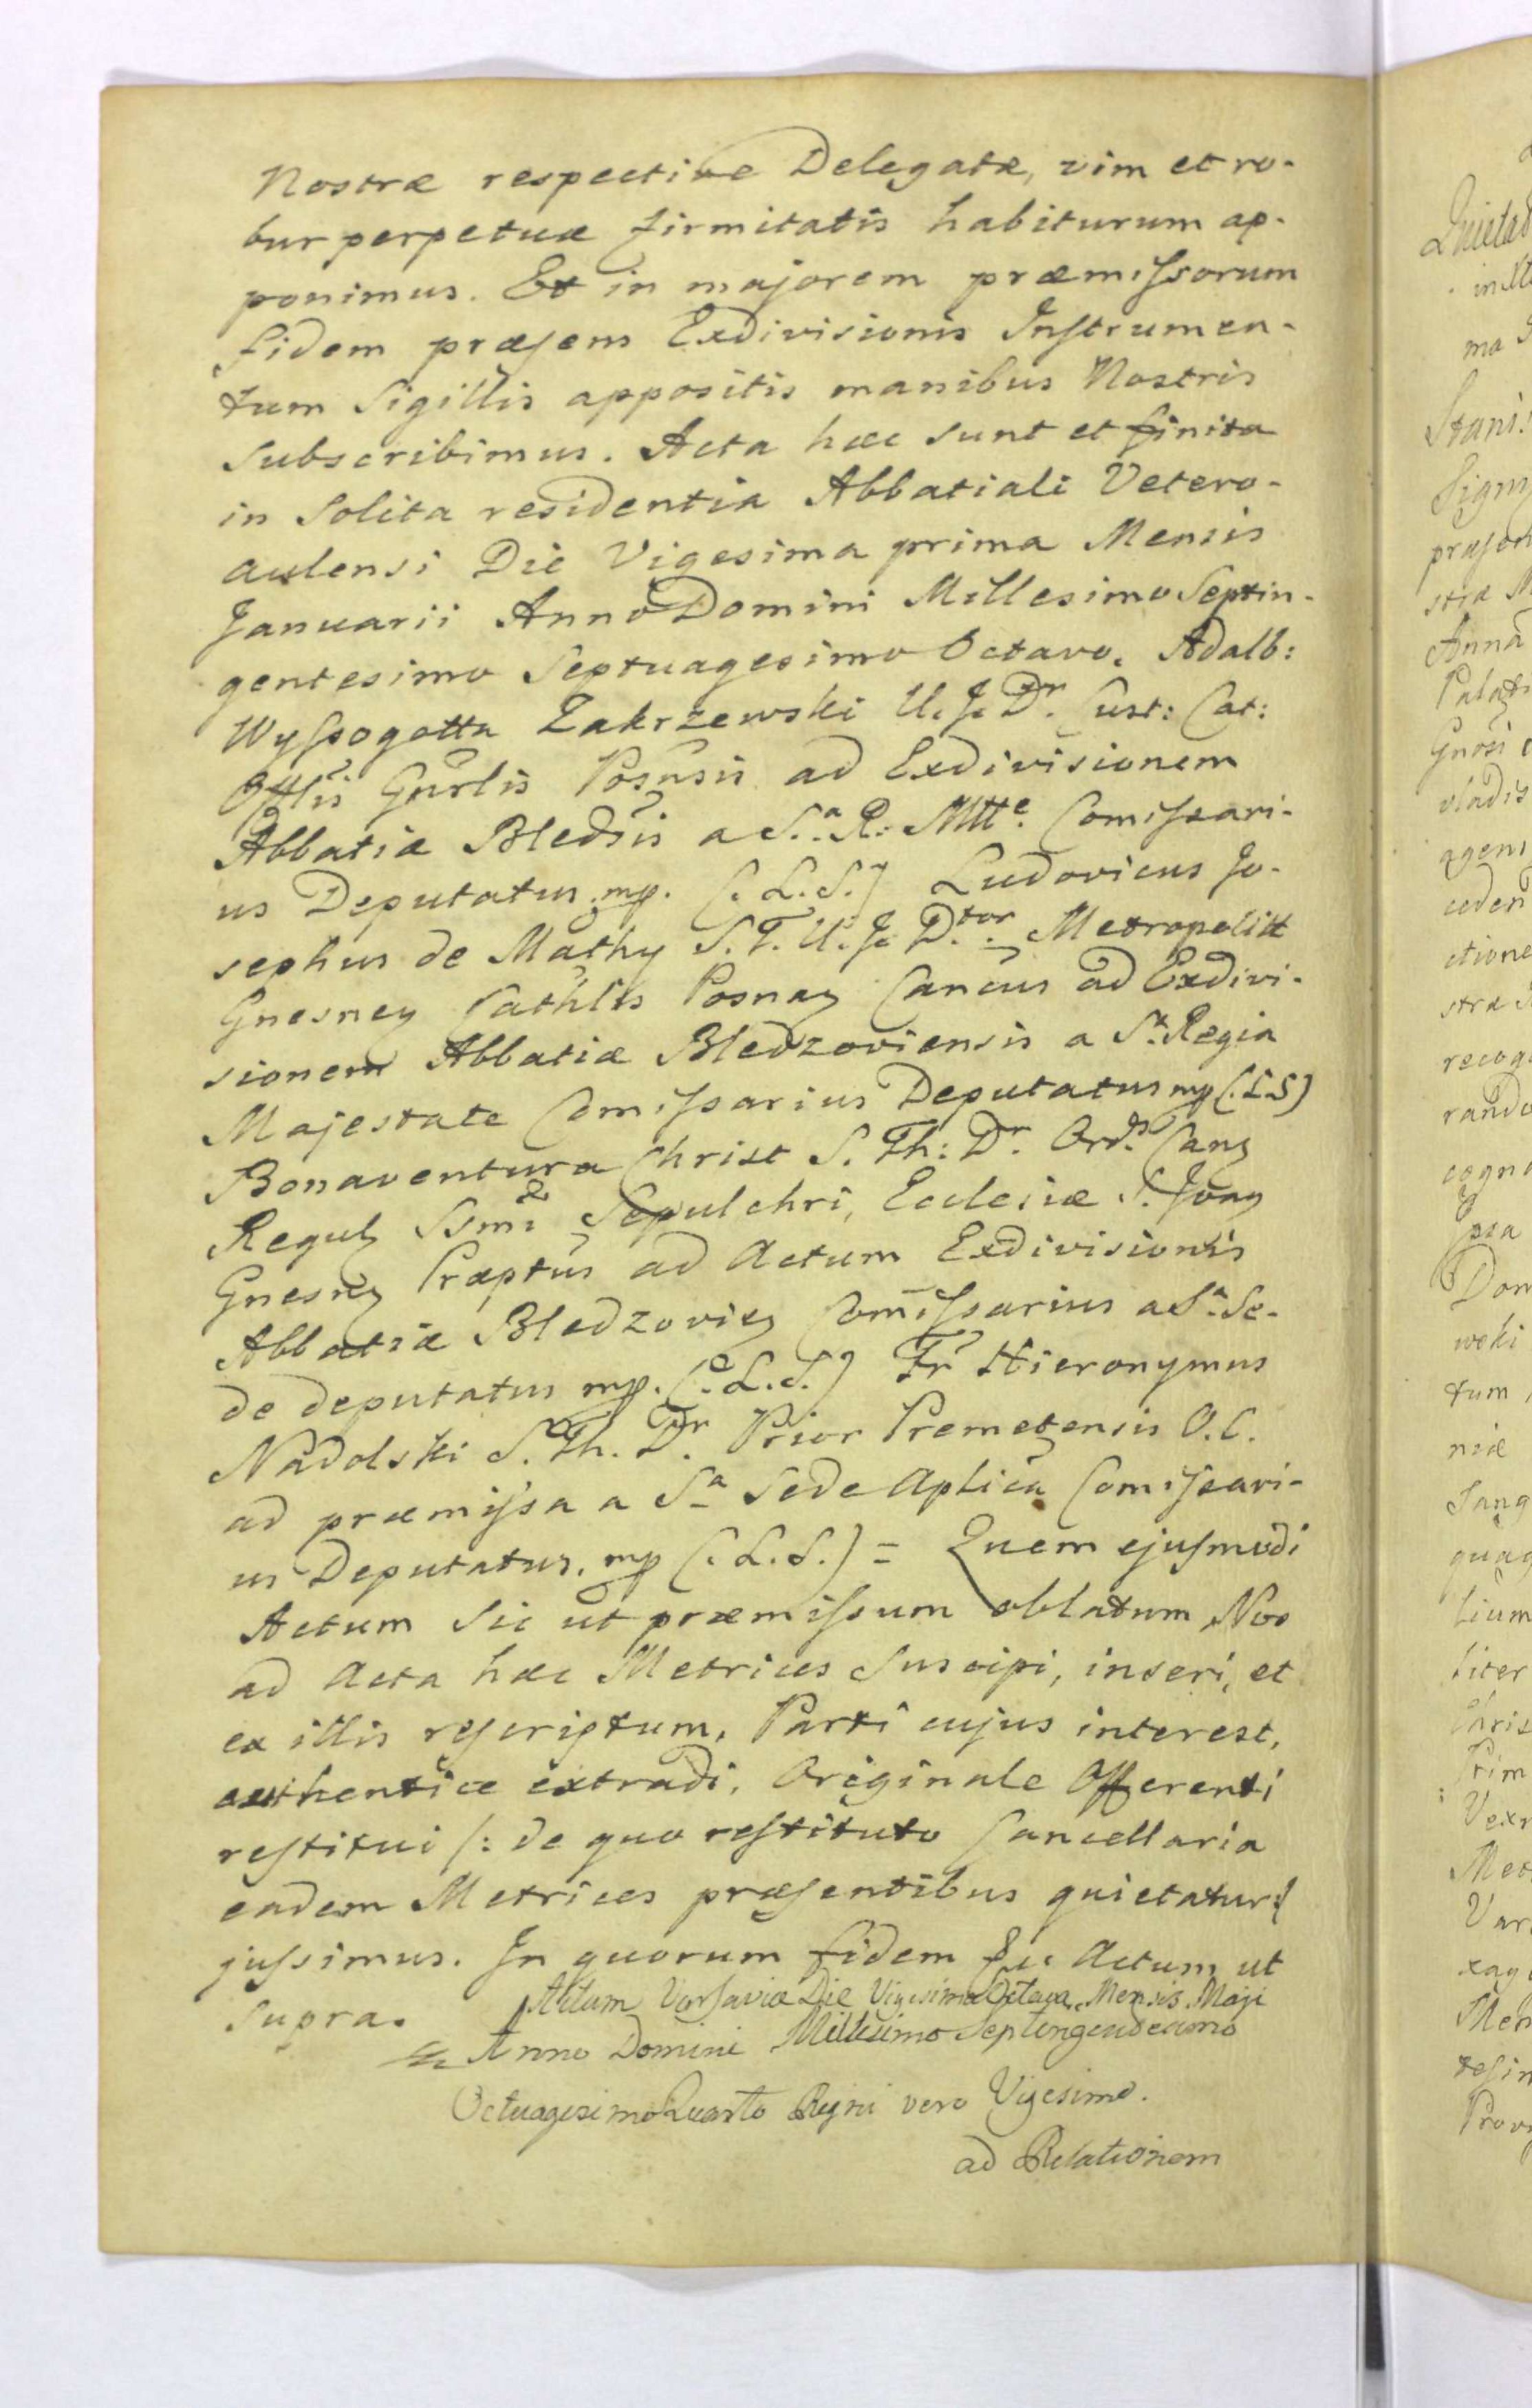 Nostræ respective Delegatæ, vim et ro-
bur perpetuæ firmitatis habiturum ap-
ponimus. Et in majorem præmissorum
fidem præsens Exdivisionis Instrumen-
tum Sigillis appositis manibus Nostris
subscribimus. Acta hæc sunt et finita
in Solita residentia Abbatiali Vetero-
aulensi Die Vigesima prima Mensis
Januarii Anno Domini Millesimo Septin-
gentesimo Septuagesimo Octavo. Adalb:
Wyssogotta Zakrzewski U. J. Dr. Cust: Cat:
Offlis Gnrlis Posnsis ad Exdivisionem
Abbatiæ Bledsis a S.a R: Mtte. Comissari-
us Deputatus. mp. (. L.S.) Ludovicus Jo-
sephus de Mathy S. T. U. J. Dtor. Metropolitt
Gnesney Cathlis Posnay Cancus ad Exdivi-
sionem Abbatiæ Bledzoviensis a S. Regia
Majestate Comissarius Deputatus mp (. LS)
Bonaventura Christ S. Th: Dr. Ord. Can
Regul Ssmi Sepulchri, Ecclesiæ S. Joan
Gnesn Præptus ad Actum Exdivisionis
Abbatiæ Bledzovien Comissarius a Sa. Se-
de deputatus mp. (. L.S.) Fr Hieronymus
Nadolski S. Th. Dr. Prior Premetensis O. C.
ad præmissa a Sa Sede Aplica Comissari-
us Deputatus. mp (. L.S.) = Quem ejusmodi
Actum sic ut præmissum oblatum Nos
ad Acta hæc Metrices Suscipi, inseri, et
ex illis rescriptum, Parti cujus interest,
authentice extradi, Originale Offerenti
restitui /: de quo restituto Cancellaria
eadem Metrices præsentibus quietatur :/
jussimus. In quorum fidem &c Actum ut
supra. Actum Varsaviæ Die Vigesima Octava Mensis Maji
Anno Domini Millesimo Septingentesimo
Octuagesimo Quarto Regni vero Vigesimo.
ad Relationem